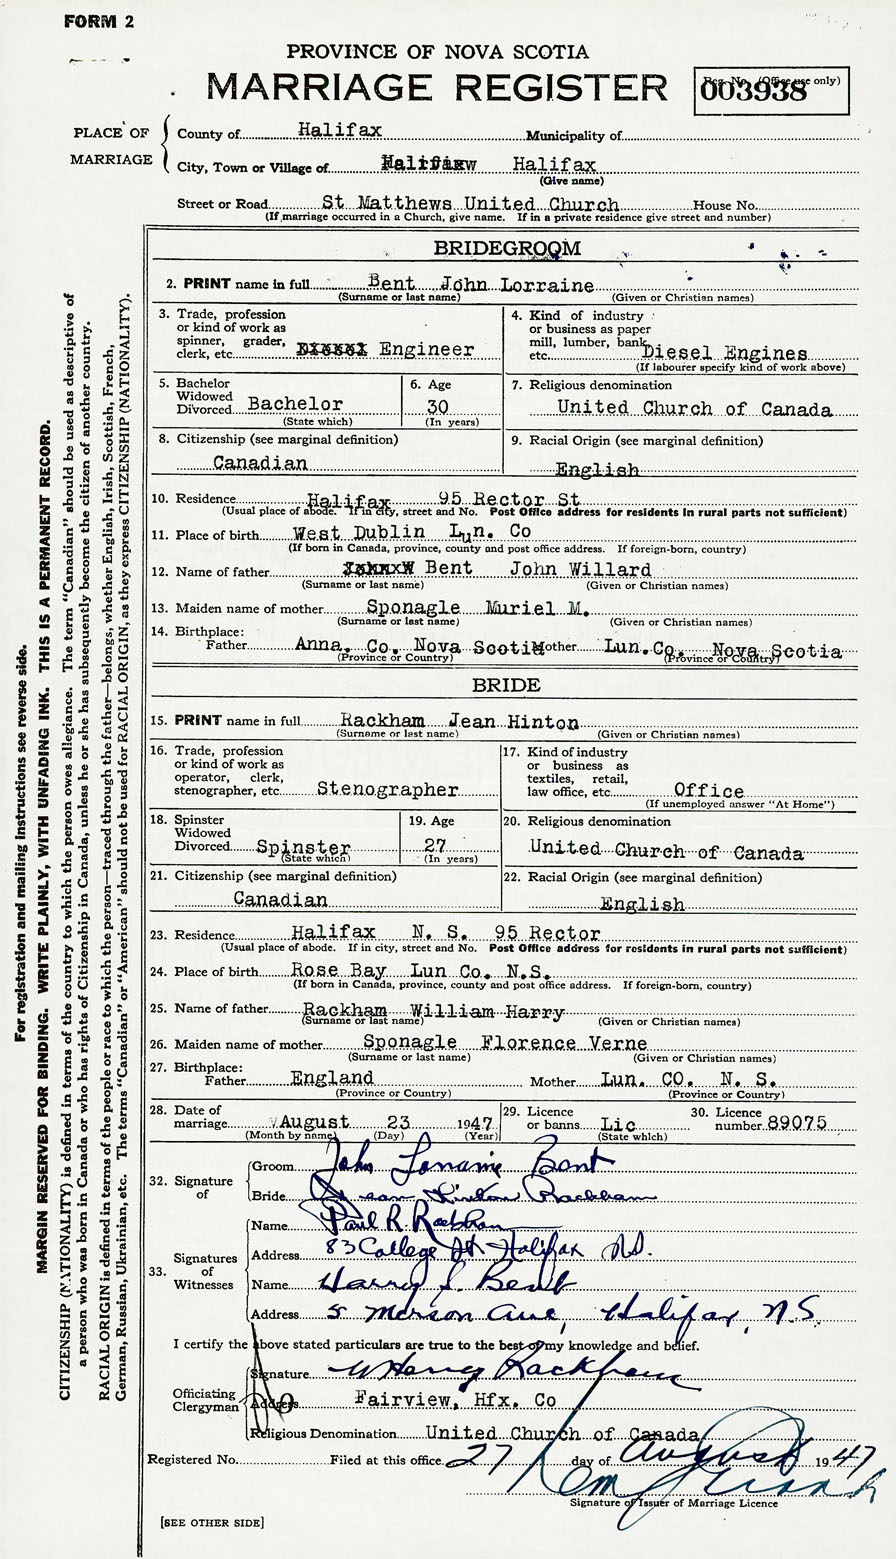 FORM 2
PROVINCE OF NOVA SCOTIA
MARRIAGE REGISTER
Reg. No. (Office use only)
003938
PLACE OF MARRIAGE
County of Halifax Municipality of
City, Town or Village of Halifax
(Give name)
Street or Road St Matthews United Church House No.
(If marriage occurred in a Church, give name. If in a private residence give street and number)
BRIDEGROOM
2. PRINT name in full Bent John Lorraine
(Surname or last name) (Given or Christian names)
3. Trade, profession or kind of work as spinner, grader, clerk, etc. Engineer
4. Kind of industry or business as paper mill, lumber, bank, etc. Diesel Engines
(If labourer specify kind of work above)
5. Bachelor Widowed Divorced Bachelor
(State which)
6. Age 30
(In years)
7. Religious denomination
United Church of Canada
8. Citizenship (see marginal definition)
Canadian
9. Racial Origin (see marginal definition)
English
10. Residence Halifax 95 Rector St
(Usual place of abode. If in city, street and No. Post Office address for residents in rural parts not sufficient)
11. Place of birth West Dublin Lun. Co
(If born in Canada, province, county and post office address. If foreign-born, country)
12. Name of father Bent John Willard
(Surname or last name) (Given or Christian names)
13. Maiden name of mother Sponagle Muriel M.
(Surname or last name) (Given or Christian names)
14. Birthplace:
Father Anna. Co. Nova Scotia Mother Lun. Co. Nova Scotia
(Province or Country) (Province or Country)
BRIDE
15. PRINT name in full Rackham Jean Hinton
(Surname or last name) (Given or Christian names)
16. Trade, profession or kind of work as operator, clerk, stenographer, etc. Stenographer
17. Kind of industry or business as textiles, retail, law office, etc. Office
(If unemployed answer "At Home")
18. Spinster Widowed Divorced Spinster
(State which)
19. Age 27
(In years)
20. Religious denomination
United Church of Canada
21. Citizenship (see marginal definition)
Canadian
22. Racial Origin (see marginal definition)
English
23. Residence Halifax N. S. 95 Rector
(Usual place of abode. If in city, street and No. Post Office address for residents in rural parts not sufficient)
24. Place of birth Rose Bay Lun Co. N.S.
(If born in Canada, province, county and post office address. If foreign-born, country)
25. Name of father Rackham William Harry
(Surname or last name) (Given or Christian names)
26. Maiden name of mother Sponagle Florence Verne
(Surname or last name) (Given or Christian names)
27. Birthplace:
Father England Mother Lun. CO. N. S.
(Province or Country) (Province or Country)
28. Date of marriage August 23 1947
(Month by name) (Day) (Year)
29. Licence or banns Lic
(State which)
30. Licence number 89075
32. Signature of
Groom John Lorraine Bent
Bride Jean Hinton Rackham
33. Signatures of Witnesses
Name Paul R. Rackham
Address 83 College St Halifax N.S.
Name Harry S. Bent
Address 5 Merson Ave, Halifax, N.S.
I certify the above stated particulars are true to the best of my knowledge and belief.
Officiating Clergyman
Signature W Harry Rackham
Address Fairview, Hfx. Co
Religious Denomination United Church of Canada
Registered No. Filed at this office 27 day of August 1947
Signature of Issuer of Marriage Licence
[SEE OTHER SIDE]
For registration and mailing instructions see reverse side.
MARGIN RESERVED FOR BINDING. WRITE PLAINLY, WITH UNFADING INK. THIS IS A PERMANENT RECORD.
CITIZENSHIP (NATIONALITY) is defined in terms of the country to which the person owes allegiance. The term "Canadian" should be used as descriptive of
a person who was born in Canada or who has rights of Citizenship in Canada, unless he or she has subsequently become the citizen of another country.
RACIAL ORIGIN is defined in terms of the people or race to which the person—traced through the father—belongs, whether English, Irish, Scottish, French,
German, Russian, Ukrainian, etc. The terms "Canadian" or "American" should not be used for RACIAL ORIGIN, as they express CITIZENSHIP (NATIONALITY).